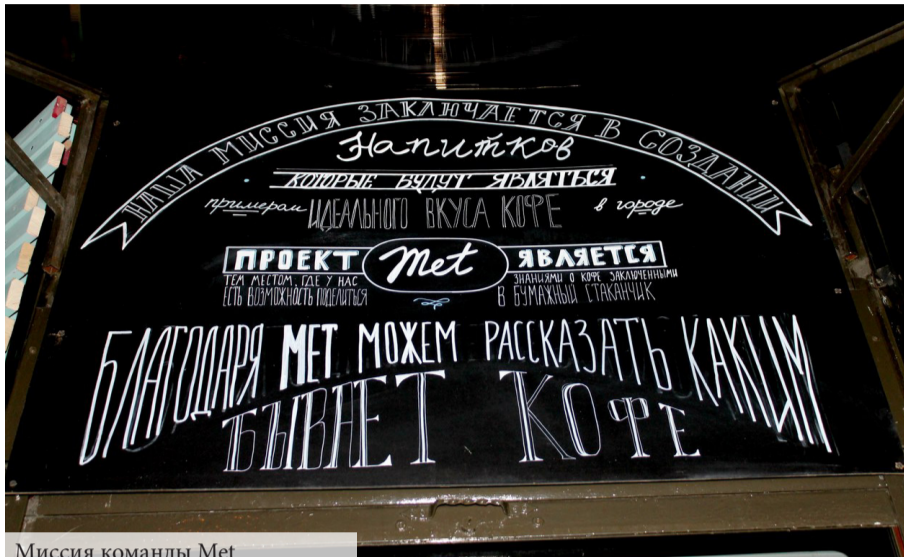 НАША МИССИЯ ЗАКЛЮЧАЕТСЯ В СОЗДАНИИ
Напитков
КОТОРЫЕ БУДУТ ЯВЛЯТЬСЯ
примером ИДЕАЛЬНОГО ВКУСА КОФЕ в городе
ПРОЕКТ Met ЯВЛЯЕТСЯ
ТЕМ МЕСТОМ, ГДЕ У НАС
ЕСТЬ ВОЗМОЖНОСТЬ ПОДЕЛИТЬСЯ
ЗНАНИЯМИ О КОФЕ ЗАКЛЮЧЕННЫМИ
В БУМАЖНЫЙ СТАКАНЧИК
БЛАГОДАРЯ МЕТ МОЖЕМ РАССКАЗАТЬ КАКИМ
БЫВАЕТ КОФЕ
Миссия команды Met